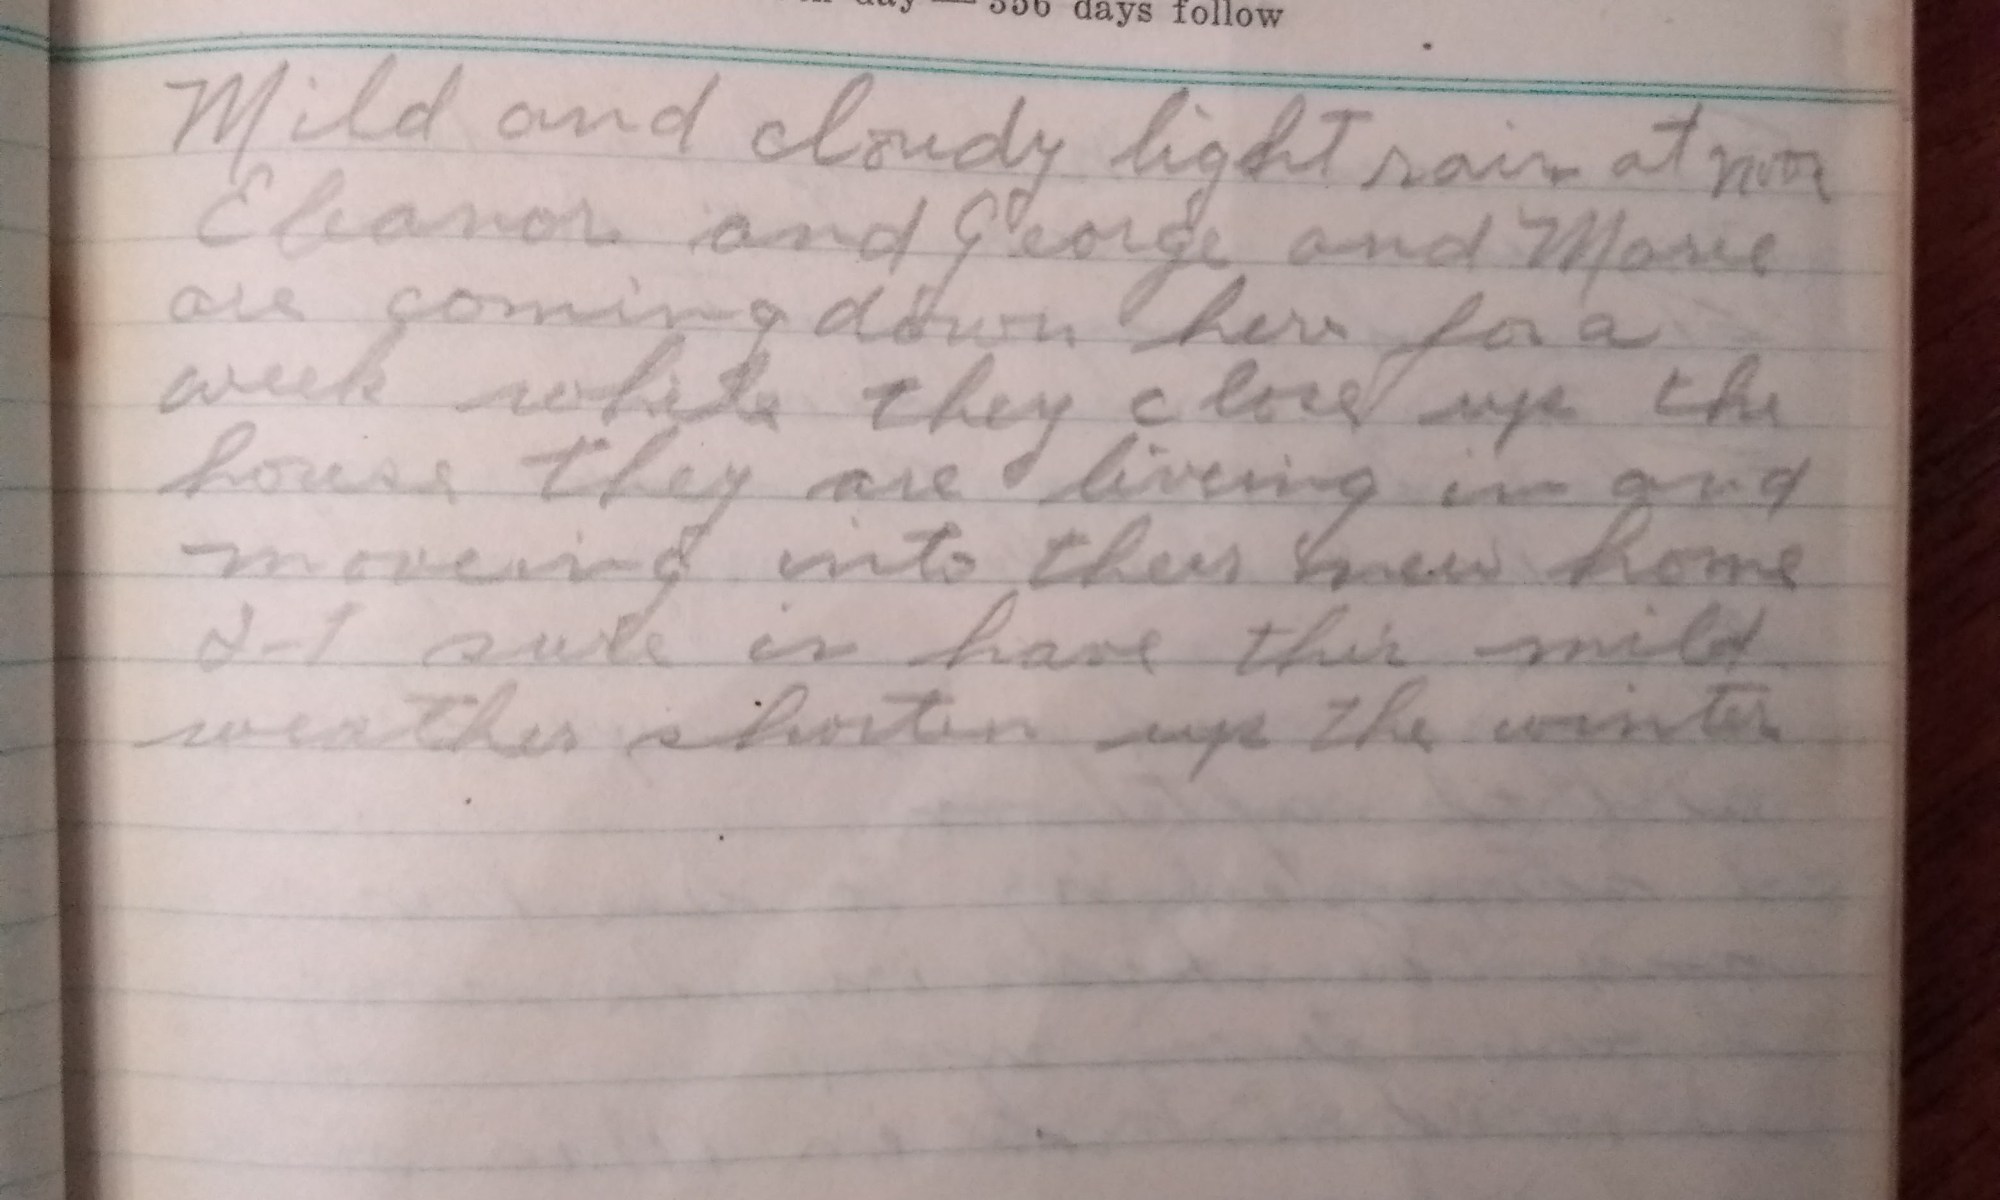 day — 356 days follow
Mild and cloudy light rain at noon
Eleanor and George and Marie
are coming down here for a
week while they close up the
house they are liveing in and
moveing into their new home
sure is have this mild
weather shorten up the winter